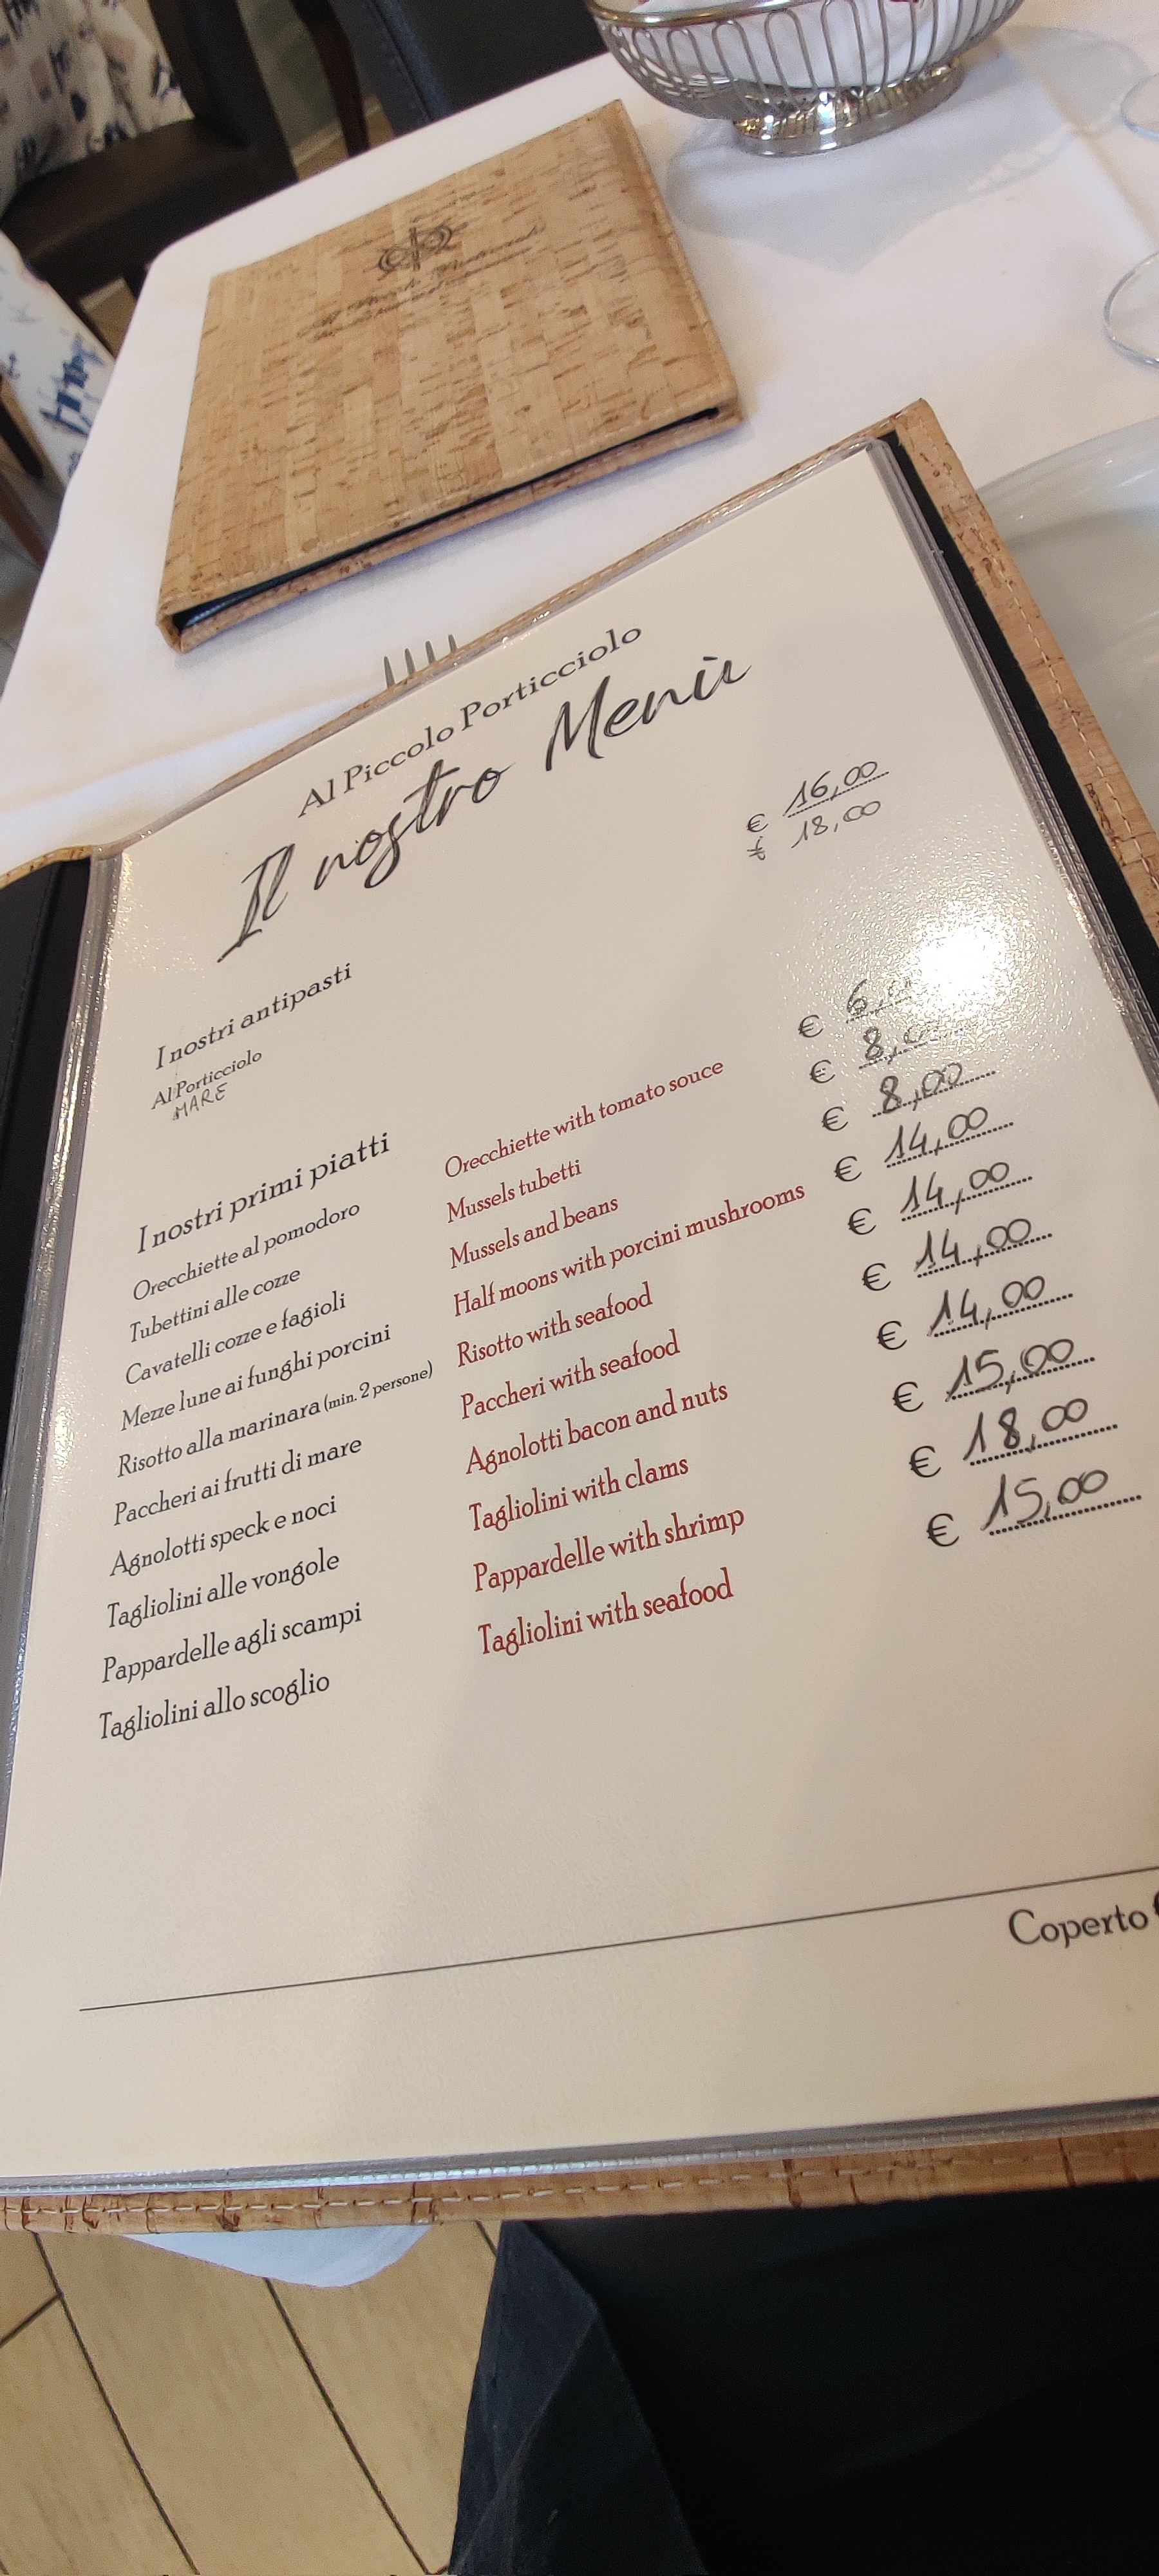 Al Piccolo Porticciolo
Il nostro Menù
I nostri antipasti
Al Porticciolo € 16,00
MARE € 18,00
I nostri primi piatti
Orecchiette al pomodoro Orecchiette with tomato souce € 6,
Tubettini alle cozze Mussels tubetti € 8,00
Cavatelli cozze e fagioli Mussels and beans € 8,00
Mezze lune ai funghi porcini Half moons with porcini mushrooms € 14,00
Risotto alla marinara (min. 2 persone) Risotto with seafood € 14,00
Paccheri ai frutti di mare Paccheri with seafood € 14,00
Agnolotti speck e noci Agnolotti bacon and nuts € 14,00
Tagliolini alle vongole Tagliolini with clams € 15,00
Pappardelle agli scampi Pappardelle with shrimp € 18,00
Tagliolini allo scoglio Tagliolini with seafood € 15,00
Coperto